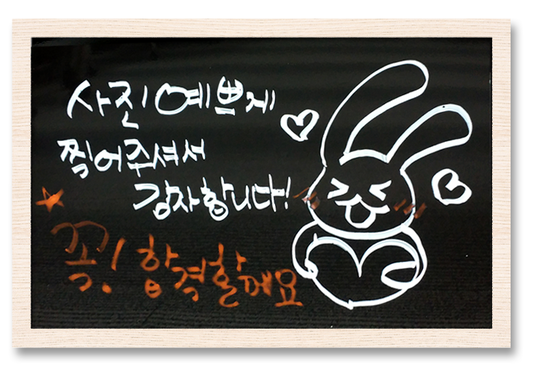 사진 예쁘게
찍어주셔서
감사합니다!
꼭! 합격할께요